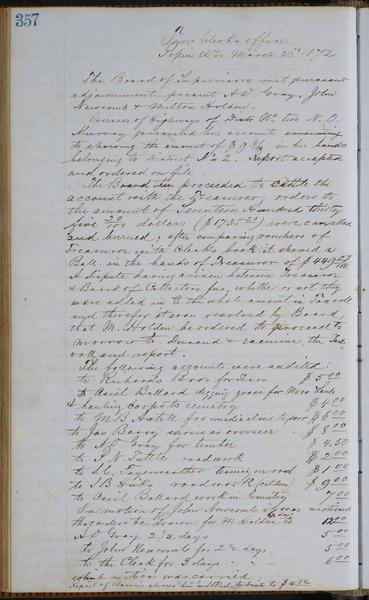 357
Town Clerk's office
Pepin Wis March 26th 1872
The Board of Supervisors met pursuant
adjournment present A D Gray, John
Newcomb & Milton Holden.
Overseer of Highways of Dists No two N. O.
Murray presented his account
to showing the amount of $9 in his hands
belonging to District No 2. Report accepted
and ordered on file.
The Board then proceeded to settle the
account with the Treasurer, orders to
the amount of Seventeen Hundred thirty
five 20/100 dollars ($1735.20) were cancelled
and burned, after comparing vouchers of
Treasurer with Clerks book it showed a
Ball. in the hands of Treasurer of $449
A dispute having arisen between Treasurer
& Board of Collectors fee, whether or not they
were added in to the whole amount in Tax roll
and therefor it was resolved by Board,
that M. Holden be ordered to proceed to
morrow to Durand & examine the Tax
roll and report.
The following accounts were audited.
to Richards Bros for $5.00
to Asail Ballard digging grave for Mrs
& hauling corps to cemetry $4.00
to M B Hatell for medical aid to poor $6.00
to Jas Barry services as overseer $8.00
to A D Gray for timber $4.50
to P. N. Tuttle road work $2.00
to S. C. Fayerweather teaming on road $1.00
to S B Hicks road work $9.00
to Asail Ballard work in Cemetry 7.00
On motion of John Newcomb it was motioned
that orders be drawn for M Holden 12.00
A D Gray 2 1/2 days 5.00
to John Newcomb for 2 1/2 days 5.00
to the Clerk for 3 days 6.00
which motion was carried